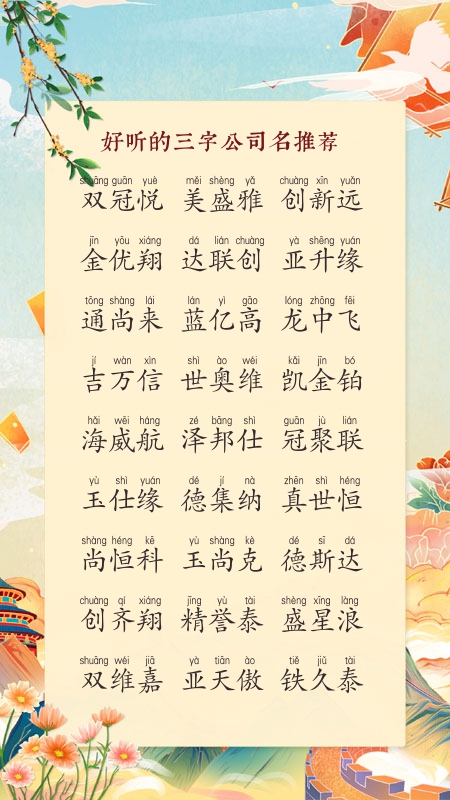 好听的三字公司名推荐
shuāng guān yuè měi shèng yǎ chuàng xīn yuǎn
双冠悦 美盛雅 创新远
jīn yōu xiáng dá lián chuàng yà shēng yuán
金优翔 达联创 亚升缘
tōng shàng lái lán yì gāo lóng zhōng fēi
通尚来 蓝亿高 龙中飞
jí wàn xìn shì ào wéi kǎi jīn bó
吉万信 世奥维 凯金铂
hǎi wēi háng zé bāng shì guān jù lián
海威航 泽邦仕 冠聚联
yù shì yuán dé jí nà zhēn shì héng
玉仕缘 德集纳 真世恒
shàng héng kē yù shàng kè dé sī dá
尚恒科 玉尚克 德斯达
chuàng qí xiáng jīng yù tài shèng xīng làng
创齐翔 精誉泰 盛星浪
shuāng wéi jiā yà tiān ào tiě jiǔ tài
双维嘉 亚天傲 铁久泰